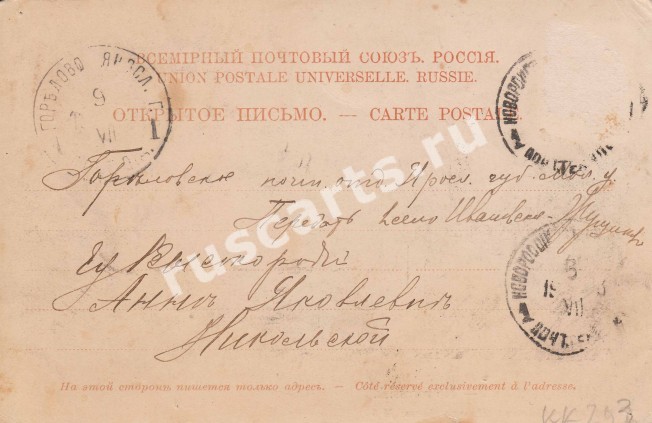 ВСЕМІРНЫЙ ПОЧТОВЫЙ СОЮЗЪ. РОССІЯ.
UNION POSTALE UNIVERSELLE. RUSSIE.
ОТКРЫТОЕ ПИСЬМО. — CARTE POSTALE.
ГОРѢЛОВО ЯРОСЛ. Г.
9
VII
1
НОВОРОССІЙ
Горѣловское почт. отд. Яросл. губ. Мол. у.
Передать село Ивановское
Ея Высокородію
Аннѣ Яковлевнѣ
Никольской
НОВОРОССІЙ
19
VII
3
ПОЧТ.
На этой сторонѣ пишется только адресъ. — Côté réservé exclusivement à l'adresse.
ruscarts.ru